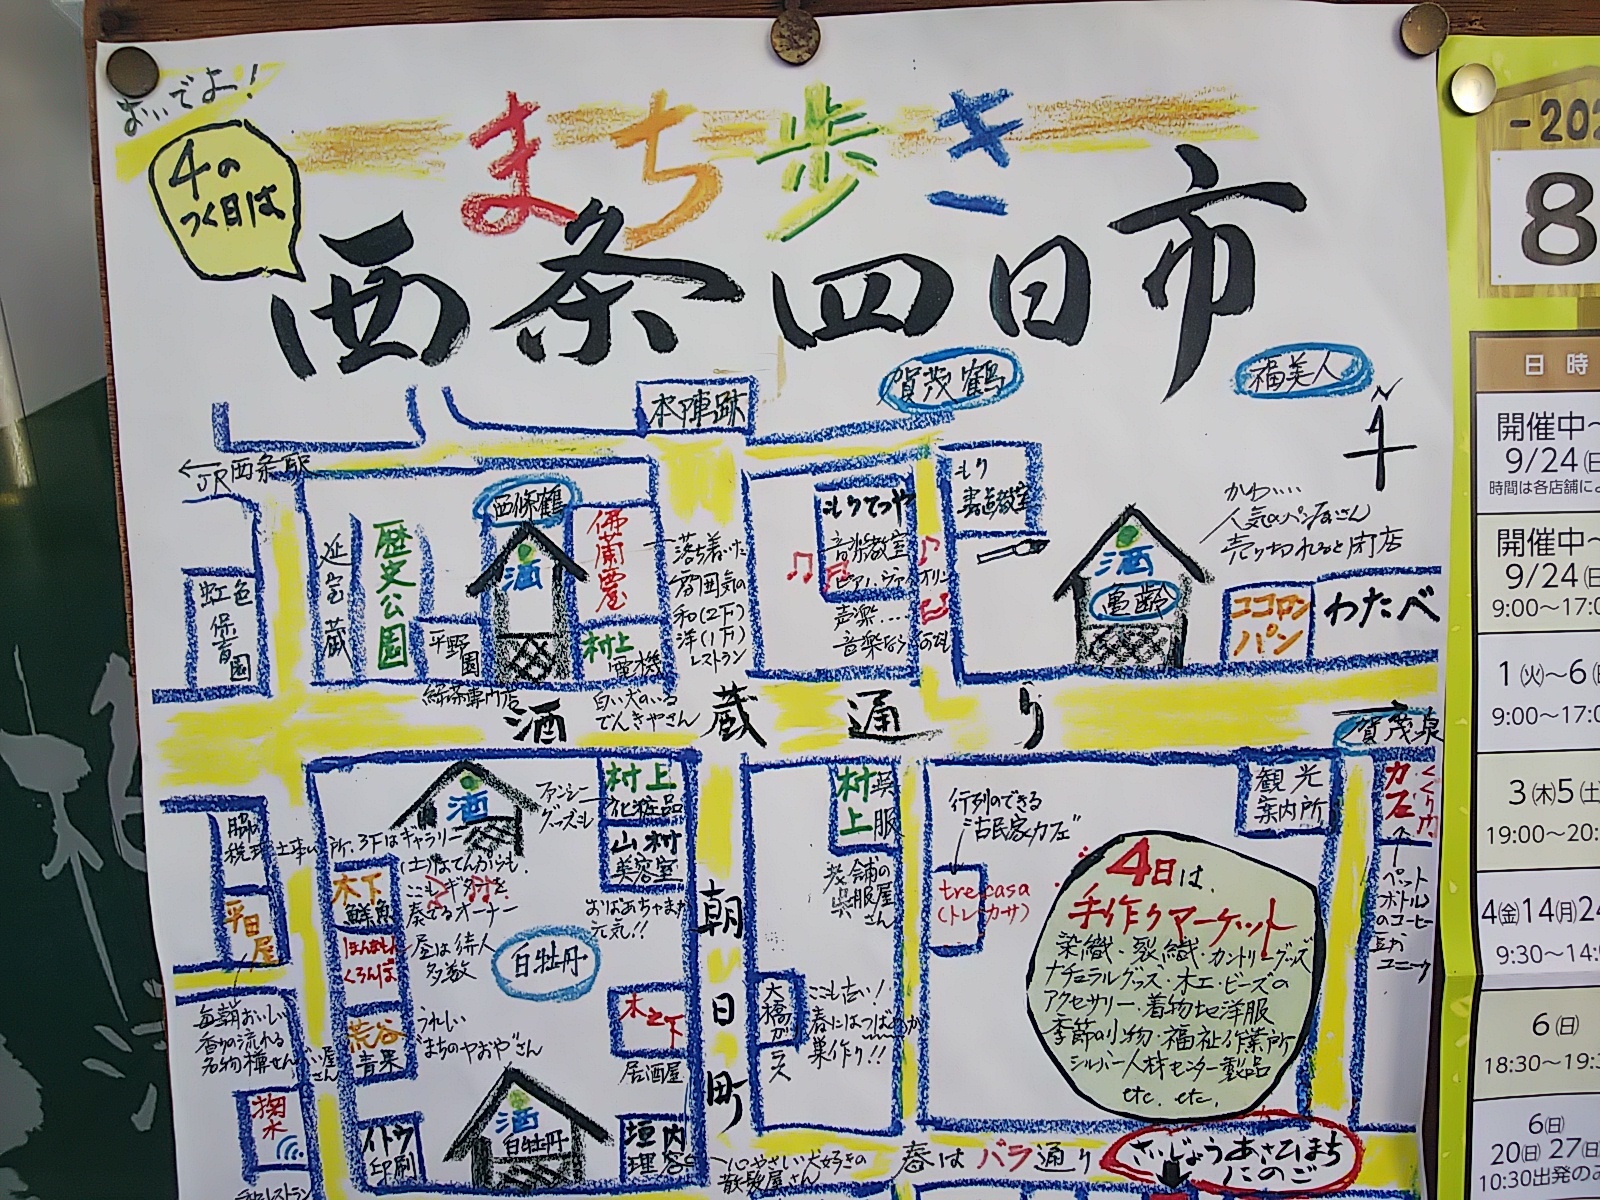 おいでよ!
4の
つく日は
まち歩き
西条四日市
賀茂鶴
福美人
本陣跡
←JR西条駅
N
西條鶴
酒
延宝蔵
歴史公園
佛蘭西屋
落ち着いた
雰囲気の
和(2F)
洋(1F)
レストラン
もりてつや
音楽教室
声楽....
音楽なら
もり
書道教室
酒
亀齢
かわ....
人気のパン屋さん
売り切れると閉店
ココロン
パン
わたべ
虹色
保育園
平野園
緑茶専門店
村上
電機
白い犬のいる
でんきやさん
酒蔵通り
賀茂泉
酒
ファンシー
グッズも
村上
化粧品
山村
美容室
おばあちゃまが
元気!!
村上
呉服
老舗の
呉服屋
さん
行列のできる
古民家カフェ
tre casa
(トレ カサ)
観光
案内所
カフェ
くぐり門
ペット
ボトル
のコーヒー
豆が
ユニーク
4日は、
手作りマーケット
染織・裂織・カントリーグッズ
ナチュラルグッズ・木工・ビーズの
アクセサリー・着物地洋服
季節の小物・福祉作業所
シルバー人材センター製品
etc. etc.
木下
鮮魚
ほんまもん
くろんぼ
奏でるオーナー
昼は待人
多数
白牡丹
平田屋
毎朝おいしい
香りの流れる
荒谷
青果
うれしい
まちのヤおやさん
木之下
居酒屋
朝日町
大橋ガラス
ここも古い!
春にはつばめが
巣作り!!
掬水
イトウ
印刷
酒
白牡丹
垣内
理容
心やさしい犬好きの
散髪屋さん
春はバラ通り
さいじょうあさひまち
にのご
-202
8
日時
開催中~
9/24(日
時間は各店舗によ
開催中~
9/24(日
9:00~17:0
1(火)~6(日
9:00~17:0
3(木)5(土)
19:00~20:
4(金)14(月)24
9:30~14:
6(日)
18:30~19:3
6(日)
20(日)27(日
10:30出発のみ